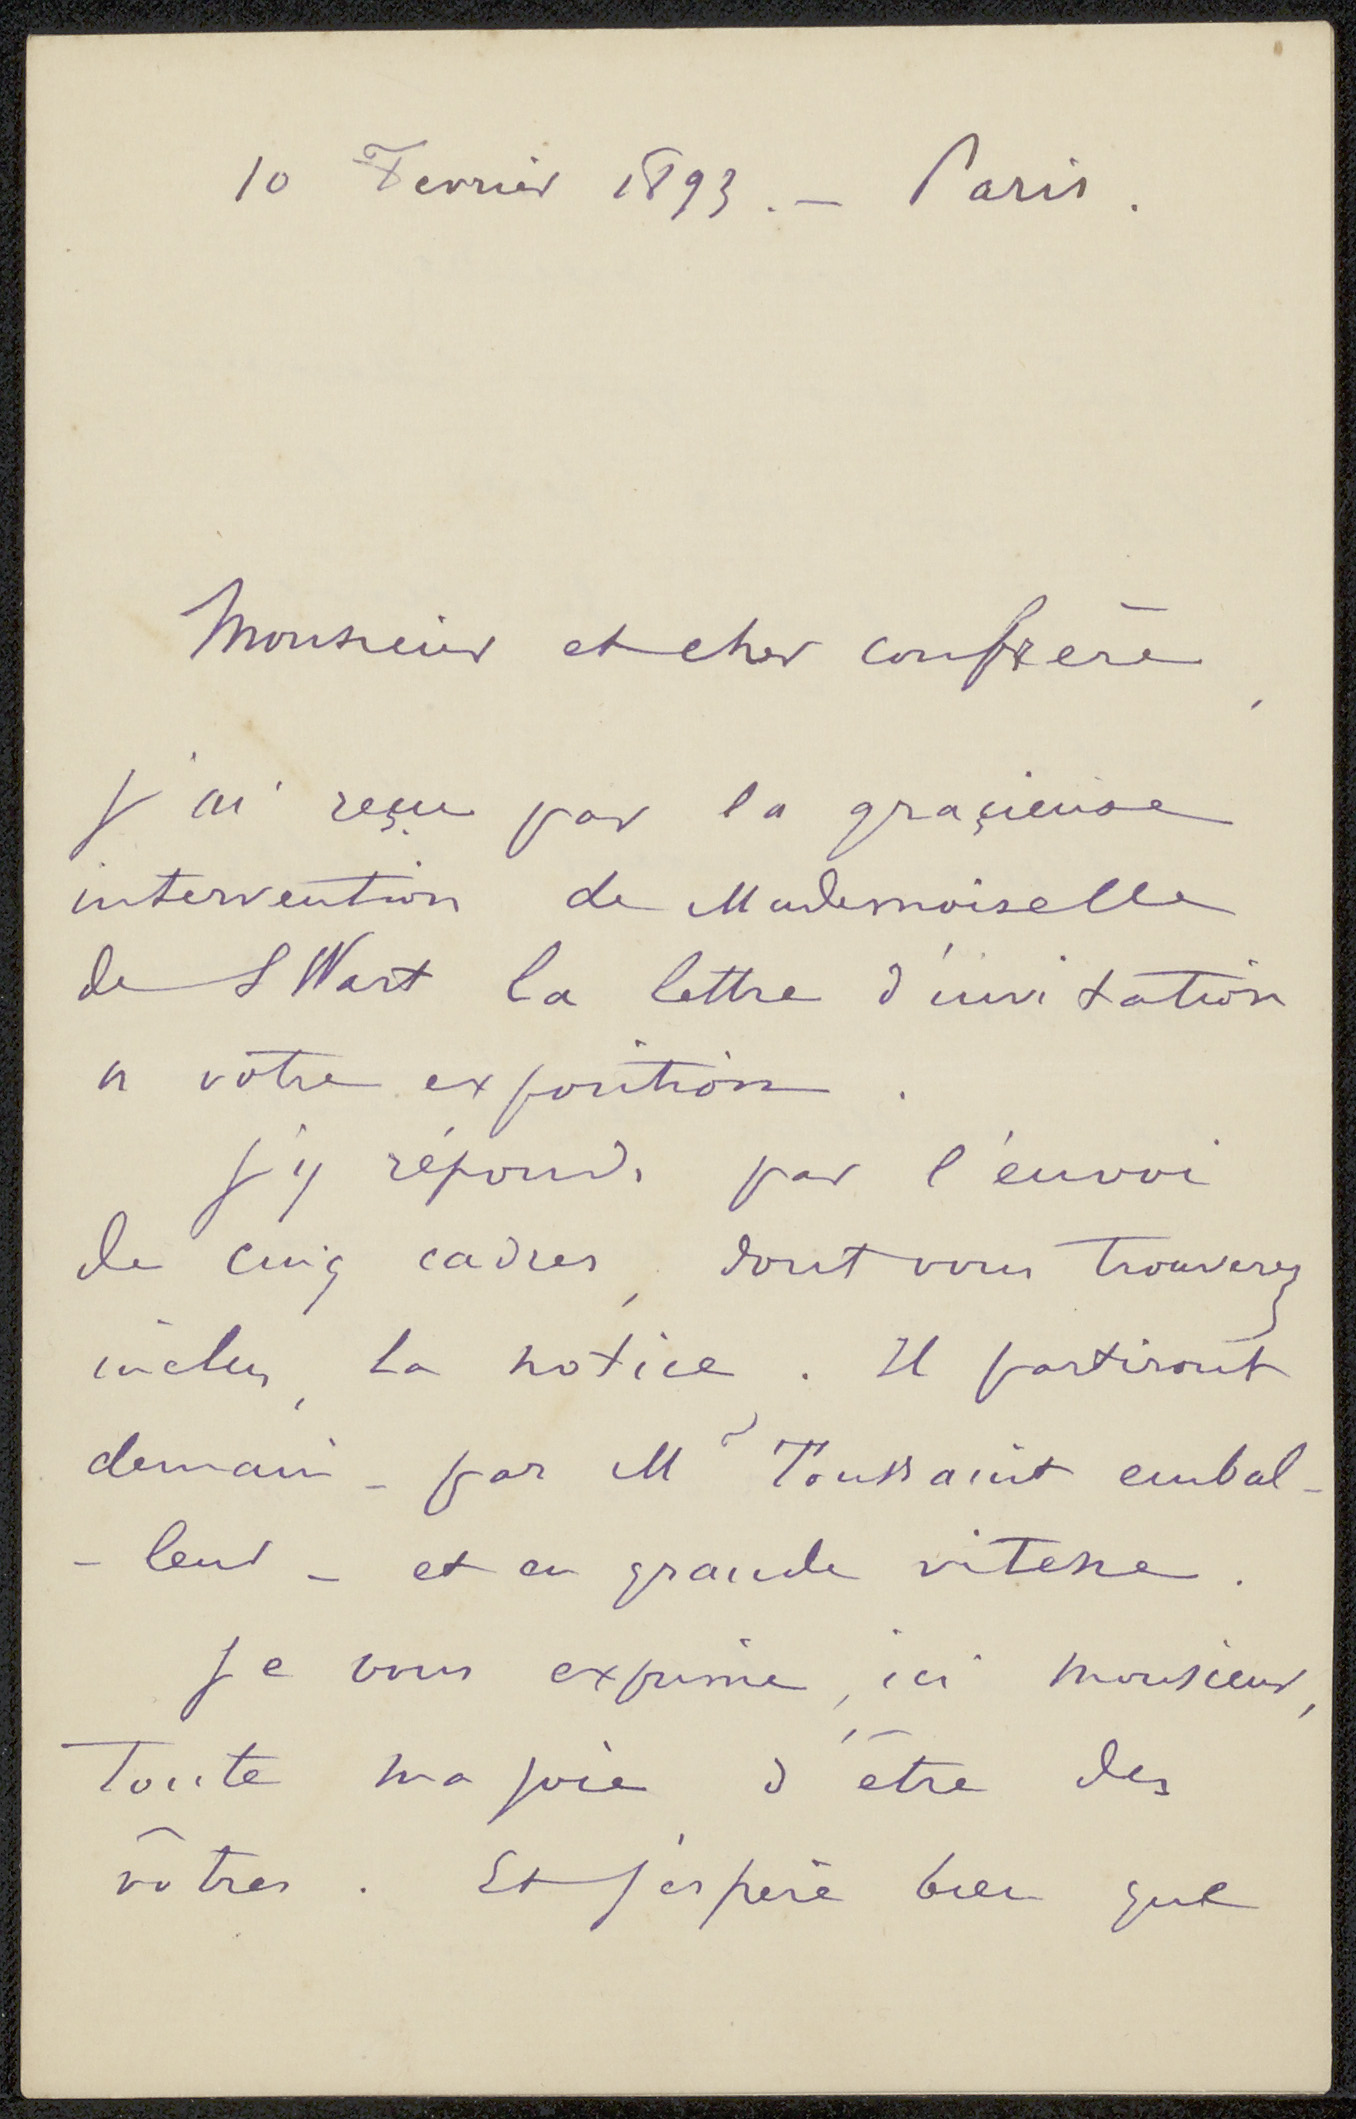 10 Fevrier 1893. — Paris.
Monsieur et cher confrère,
J'ai reçu par la graçieuse
intervention de Mademoiselle
de SWart la lettre d'invitation
a votre exposition.
J'y réponds par l'envoi
de cinq cadres, dont vous trouverez
inclus, la notice. Il partiront
demain - par Mr Toussaint embal-
-leur - et en grande vitesse.
Je vous exprime, ici monsieur,
Toute ma joie d'être des
vôtres. Et j'espère bien que